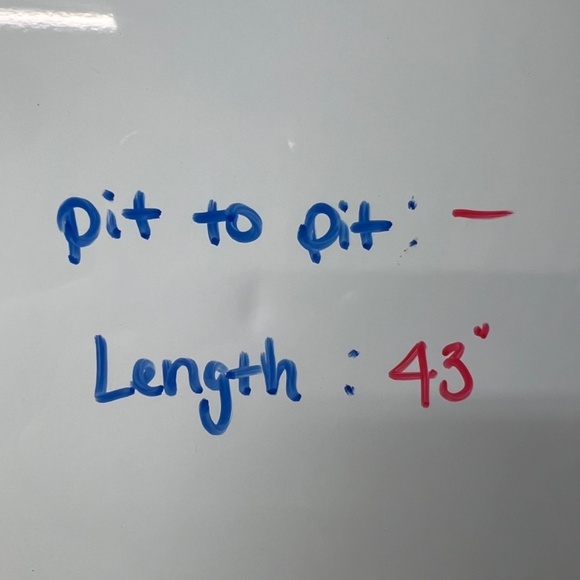 pit to pit : —
Length : 43"